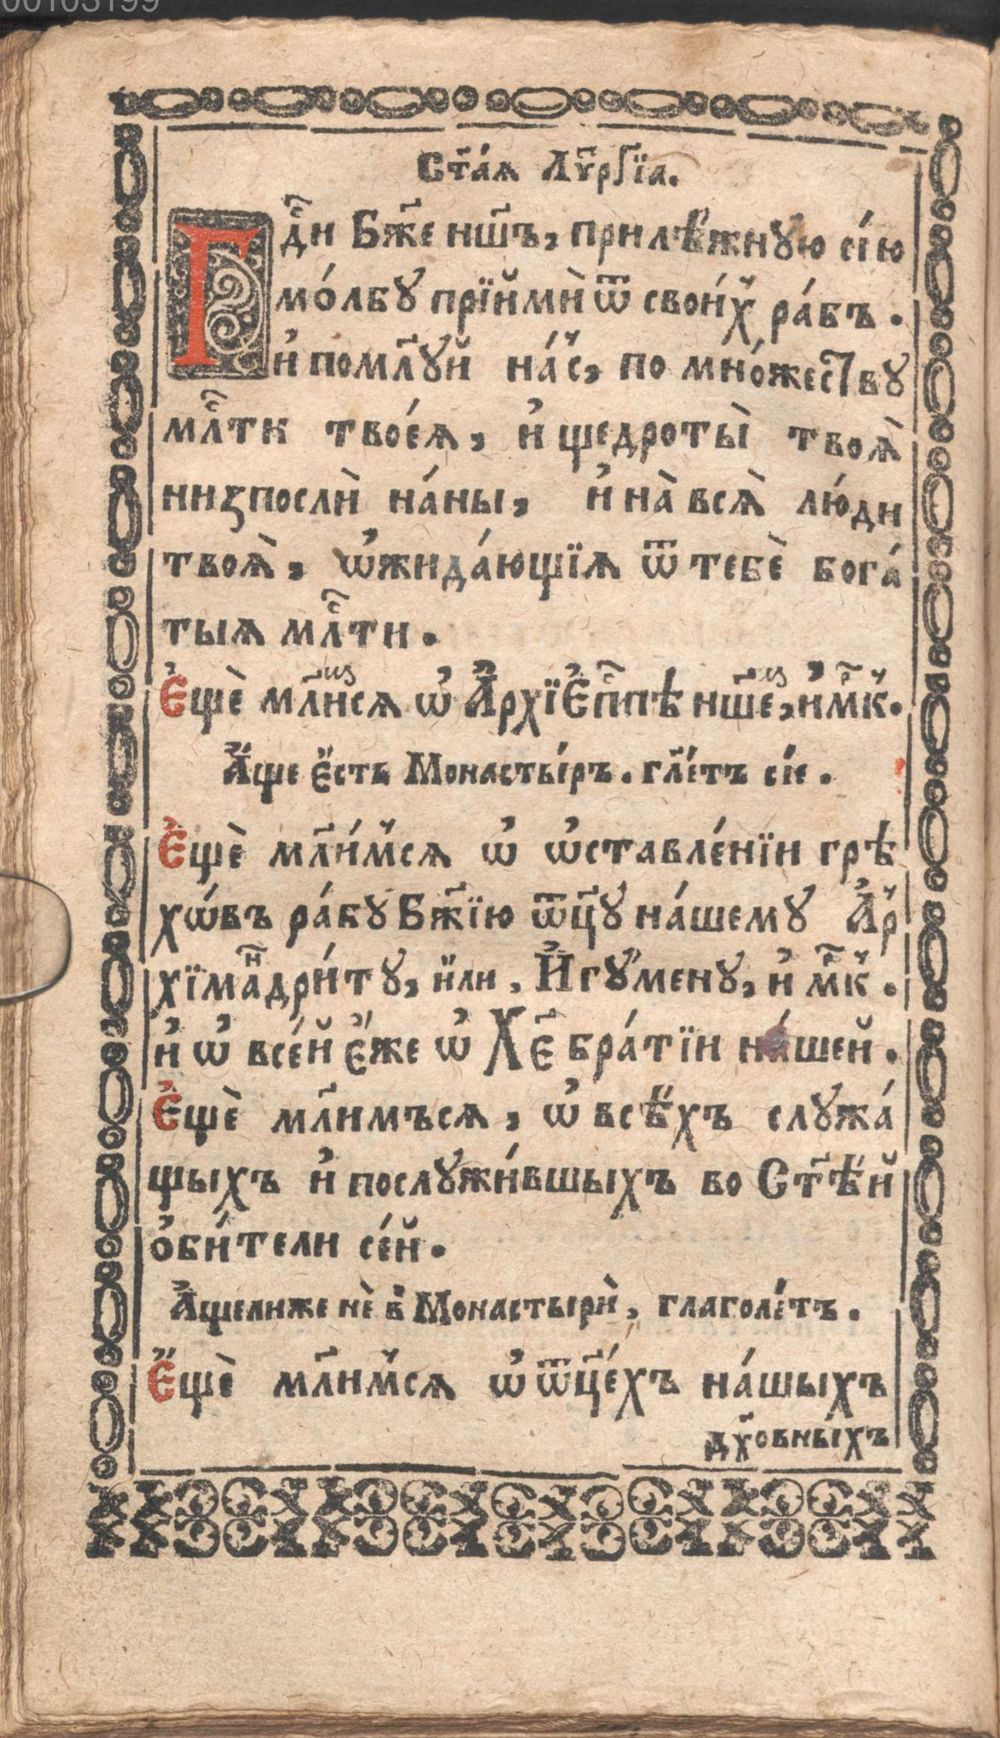 00103199
Ст҃а́ѧ Лꙋ҃рГїа.
Гдⷭ҇и Бж҃е нш҃ъ, прилѣ́жнꙋю сі́ю
мо́лбꙋ прїи̑мѝ ѿ свои́х̾ ра́бъ.
и҆ помл҃ꙋй на́с̾, по мно́жествꙋ
млⷭ҇ти твоеѧ̀, и҆ щедроты̀ твоѧ̀
низпослѝ на́ны, и҆ на̀ всѧ̀ лю́ди
твоѧ̀, ѡ҆жида́ющїѧ ѿ тебѐ бога́
тыѧ млⷭ҇ти.
Е҆щѐ мл҃имсѧ ѡ҆ А҆рхїЕ҆пⷭ҇пѣ нш҃емъ, и҆мⷬ҇к̾.
А҆́ще е҆́сть Монасты́ръ. гл҃е́тъ сі́е.
Е҆щѐ мл҃и́м̾сѧ ѡ҆ ѡ҆ставле́нїи грѣ
хѡ́въ ра́бꙋ Бж҃їю ѿц҃ꙋ на́шемꙋ А҆р̾
хїмаⷩ҇дри́тꙋ, и҆́ли, И҆гꙋ́менꙋ, и҆ мⷬ҇к̾.
и҆ ѡ҆ все́й е҆́же ѡ҆ Хе҃ бра́тїи на́шей.
Е҆щѐ мл҃имъсѧ, ѡ҆ всѣ́хъ слꙋжа́
щыхъ и҆ послꙋжи́вшыхъ во Ст҃ѣ́й
о҆би́тели се́й.
А҆щелиже нѐ в̾ Монастырѝ, глаголе́тъ.
Е҆щѐ мл҃им̾сѧ ѡ҆ ѿц҃е́хъ на́шыхъ
дх҃овны́хъ